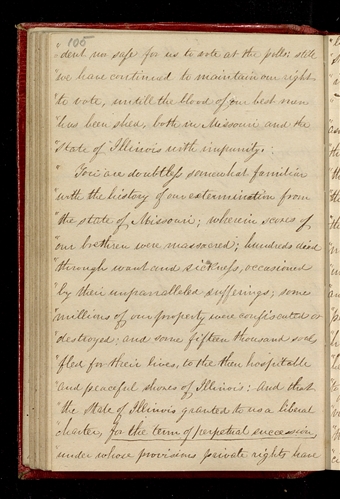 105
"dent nor safe for us to vote at the polls; still
"we have continued to maintain our right
"to vote, untill the blood of our best men
"has been shed, both in Missouri and the
"State of Illinois with impunity.
"You are doubtless somewhat familiar
"with the history of our extermination from
"the state of Missouri; wherein scores of
"our brethren were massacred; hundreds died
"through want and sickness, occasioned
"by their unparralleled sufferings; some
"millions of our property were confiscated or
"destroyed; and some fifteen thousand souls
"fled for their lives, to the then hospitable
"and peaceful shores of Illinois: and that
"the State of Illinois granted to us a liberal
"charter, for the term of perpetual succession,
"under whose provisions private rights have